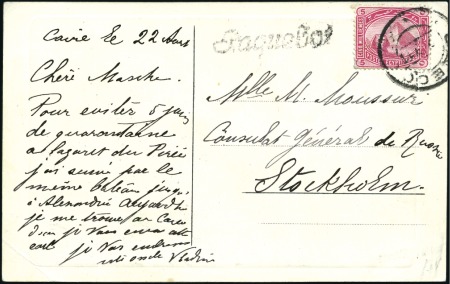 Caire le 22 Mars
Chère Mascha.
Pour eviter 5 jours
de quarantaine
a lazaret du Pirée
j'ai suivi par le
même bateau
à Alexandrie
je me trouve au Caire
d'où je vous envoie cette
carte je vous embrasse
oncle
Paquebot
Mlle M. Moussuri
Consulat Général de Russie
Stockholm.